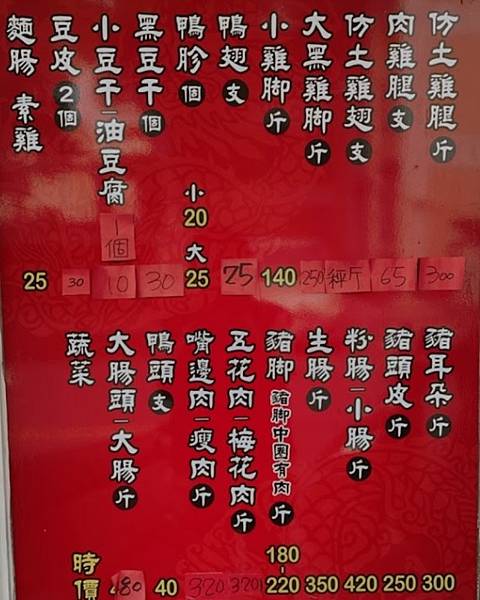 仿土雞腿斤 300
肉雞腿支 65
仿土雞翅支 秤斤
大黑雞腳斤 250
小雞腳斤 140
鴨翅支 25
鴨胗個 小20 大25
黑豆干個 30
小豆干一油豆腐 1個 10
豆皮2個 30
麵腸 素雞 25
豬耳朵斤 300
豬頭皮斤 250
粉腸一小腸斤 420
生腸斤 350
豬腳 豬腳中圈有肉斤 180-220
五花肉一梅花肉斤 320
嘴邊肉一瘦肉斤 320
鴨頭支 40
大腸頭一大腸斤
蔬菜 時價